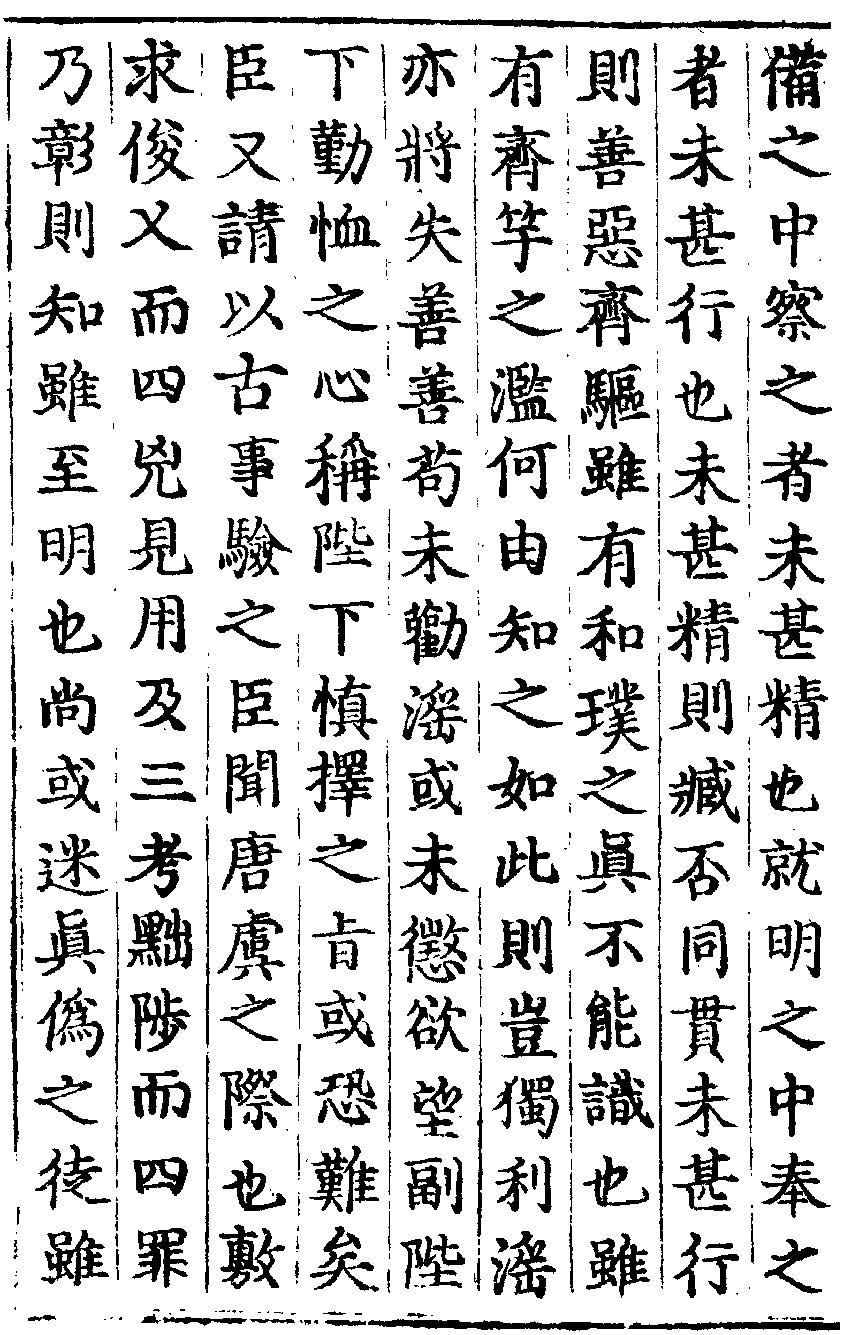 備之中察之者未甚精也就明之中奉之
者未甚行也未甚精則臧否同貫未甚行
則善惡齊驅雖有和璞之眞不能識也雖
有齊竽之濫何由知之如此則豈獨利淫
亦將失善善苟未勸淫或未懲欲望副陛
下勤恤之心稱陛下慎擇之旨或恐難矣
臣又請以古事驗之臣聞唐虞之際也敷
求俊乂而四兇見用及三考黜陟而四罪
乃彰則知雖至明也尚或迷眞僞之徒雖